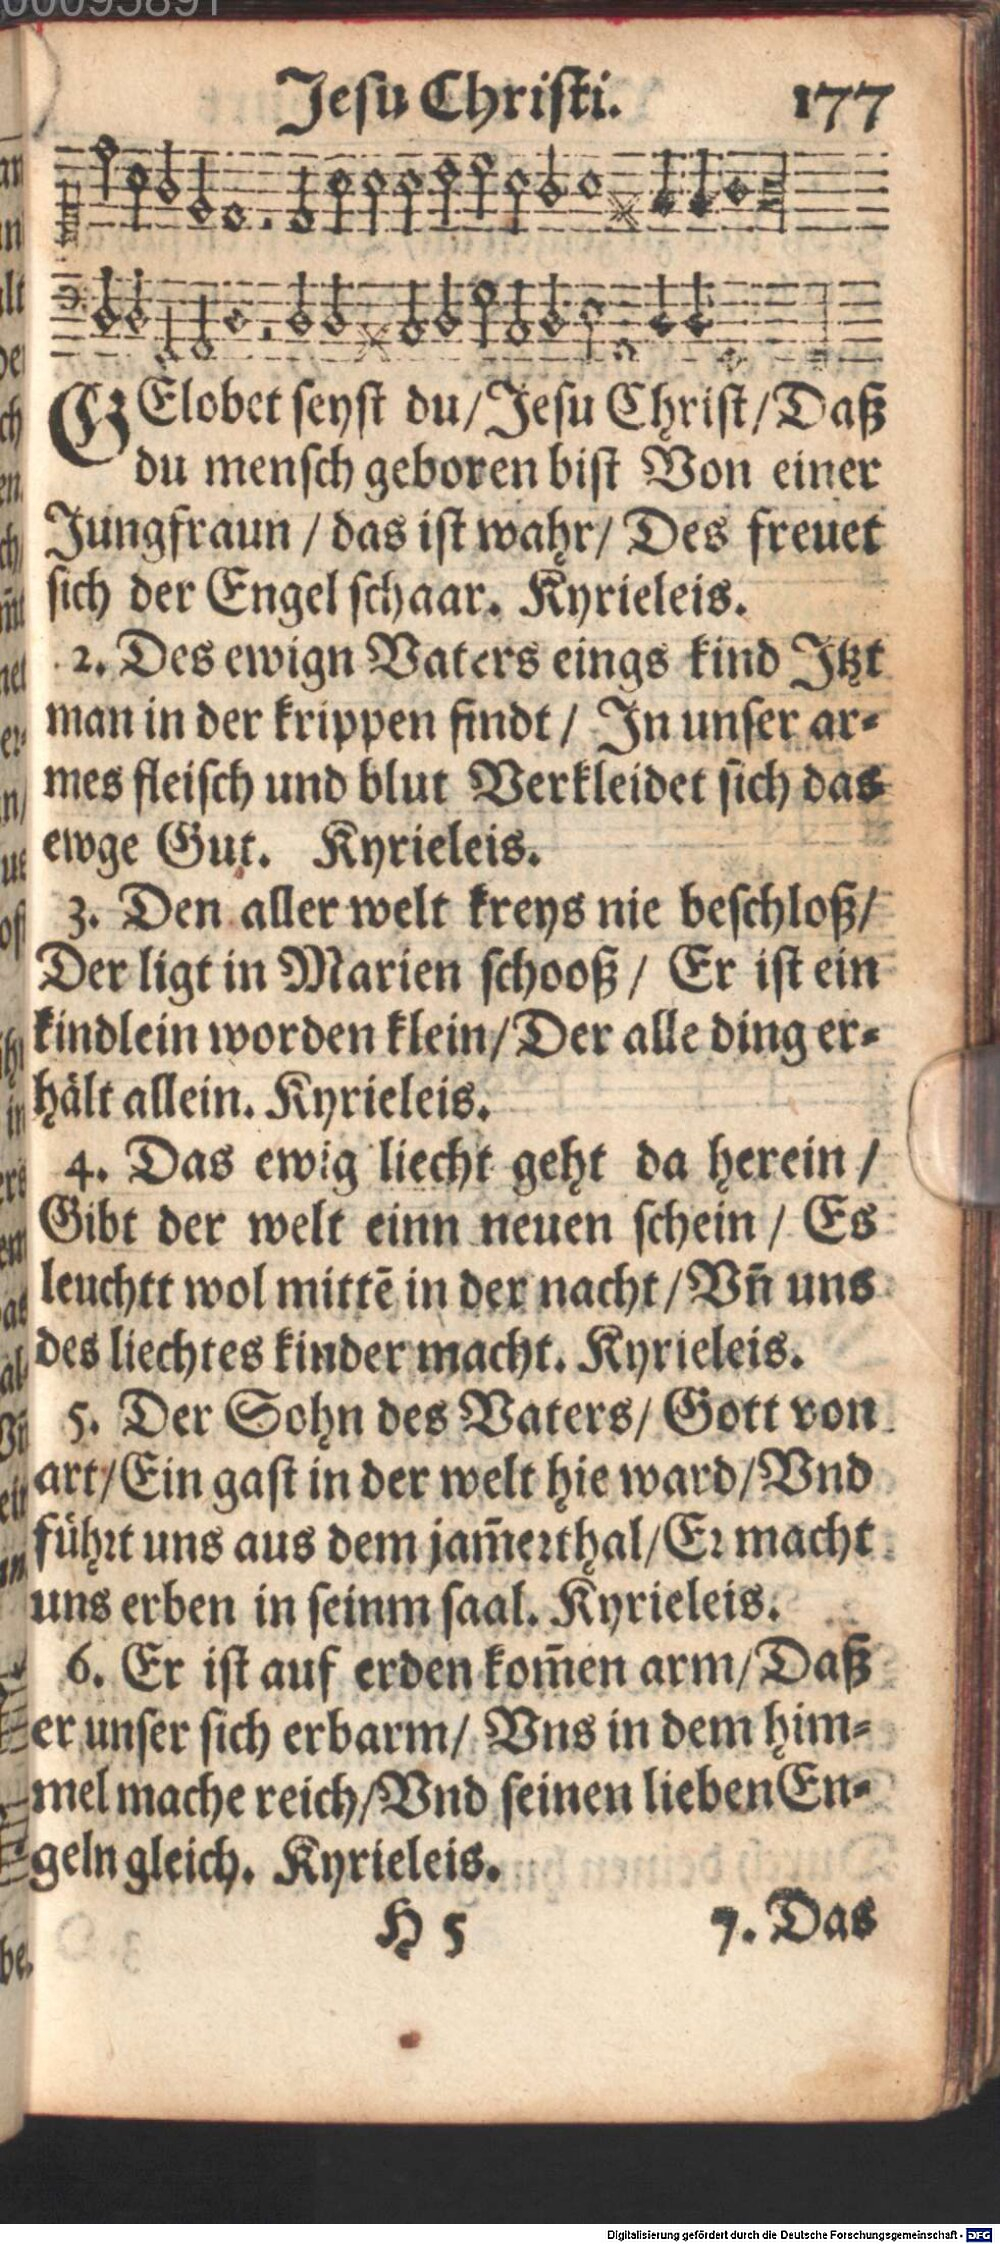 Jeſu Chriſti. 177
GElobet ſeyſt du/Jeſu Chriſt/Daß
du menſch geboren biſt Von einer
Jungfraun / das iſt wahr/ Des freuet
ſich der Engel ſchaar. Kyrieleis.
2. Des ewign Vaters eings kind Jtzt
man in der krippen findt / Jn unſer ar⸗
mes fleiſch und blut Verkleidet ſich das
ewge Gut. Kyrieleis.
3. Den aller welt kreys nie beſchloß/
Der ligt in Marien ſchooß / Er iſt ein
kindlein worden klein/Der alle ding er⸗
hält allein. Kyrieleis.
4. Das ewig liecht geht da herein /
Gibt der welt einn neuen ſchein / Es
leuchtt wol mittē in der nacht/Vn̄ uns
des liechtes kinder macht. Kyrieleis.
5. Der Sohn des Vaters/ Gott von
art/Ein gaſt in der welt hie ward/Vnd
führt uns aus dem jam̄erthal/Er macht
uns erben in ſeinm ſaal. Kyrieleis.
6. Er iſt auf erden kom̄en arm/Daß
er unſer ſich erbarm/ Vns in dem him⸗
mel mache reich/Vnd ſeinen lieben En⸗
geln gleich. Kyrieleis.
H 5 7. Das
Digitalisierung gefördert durch die Deutsche Forschungsgemeinschaft - DFG